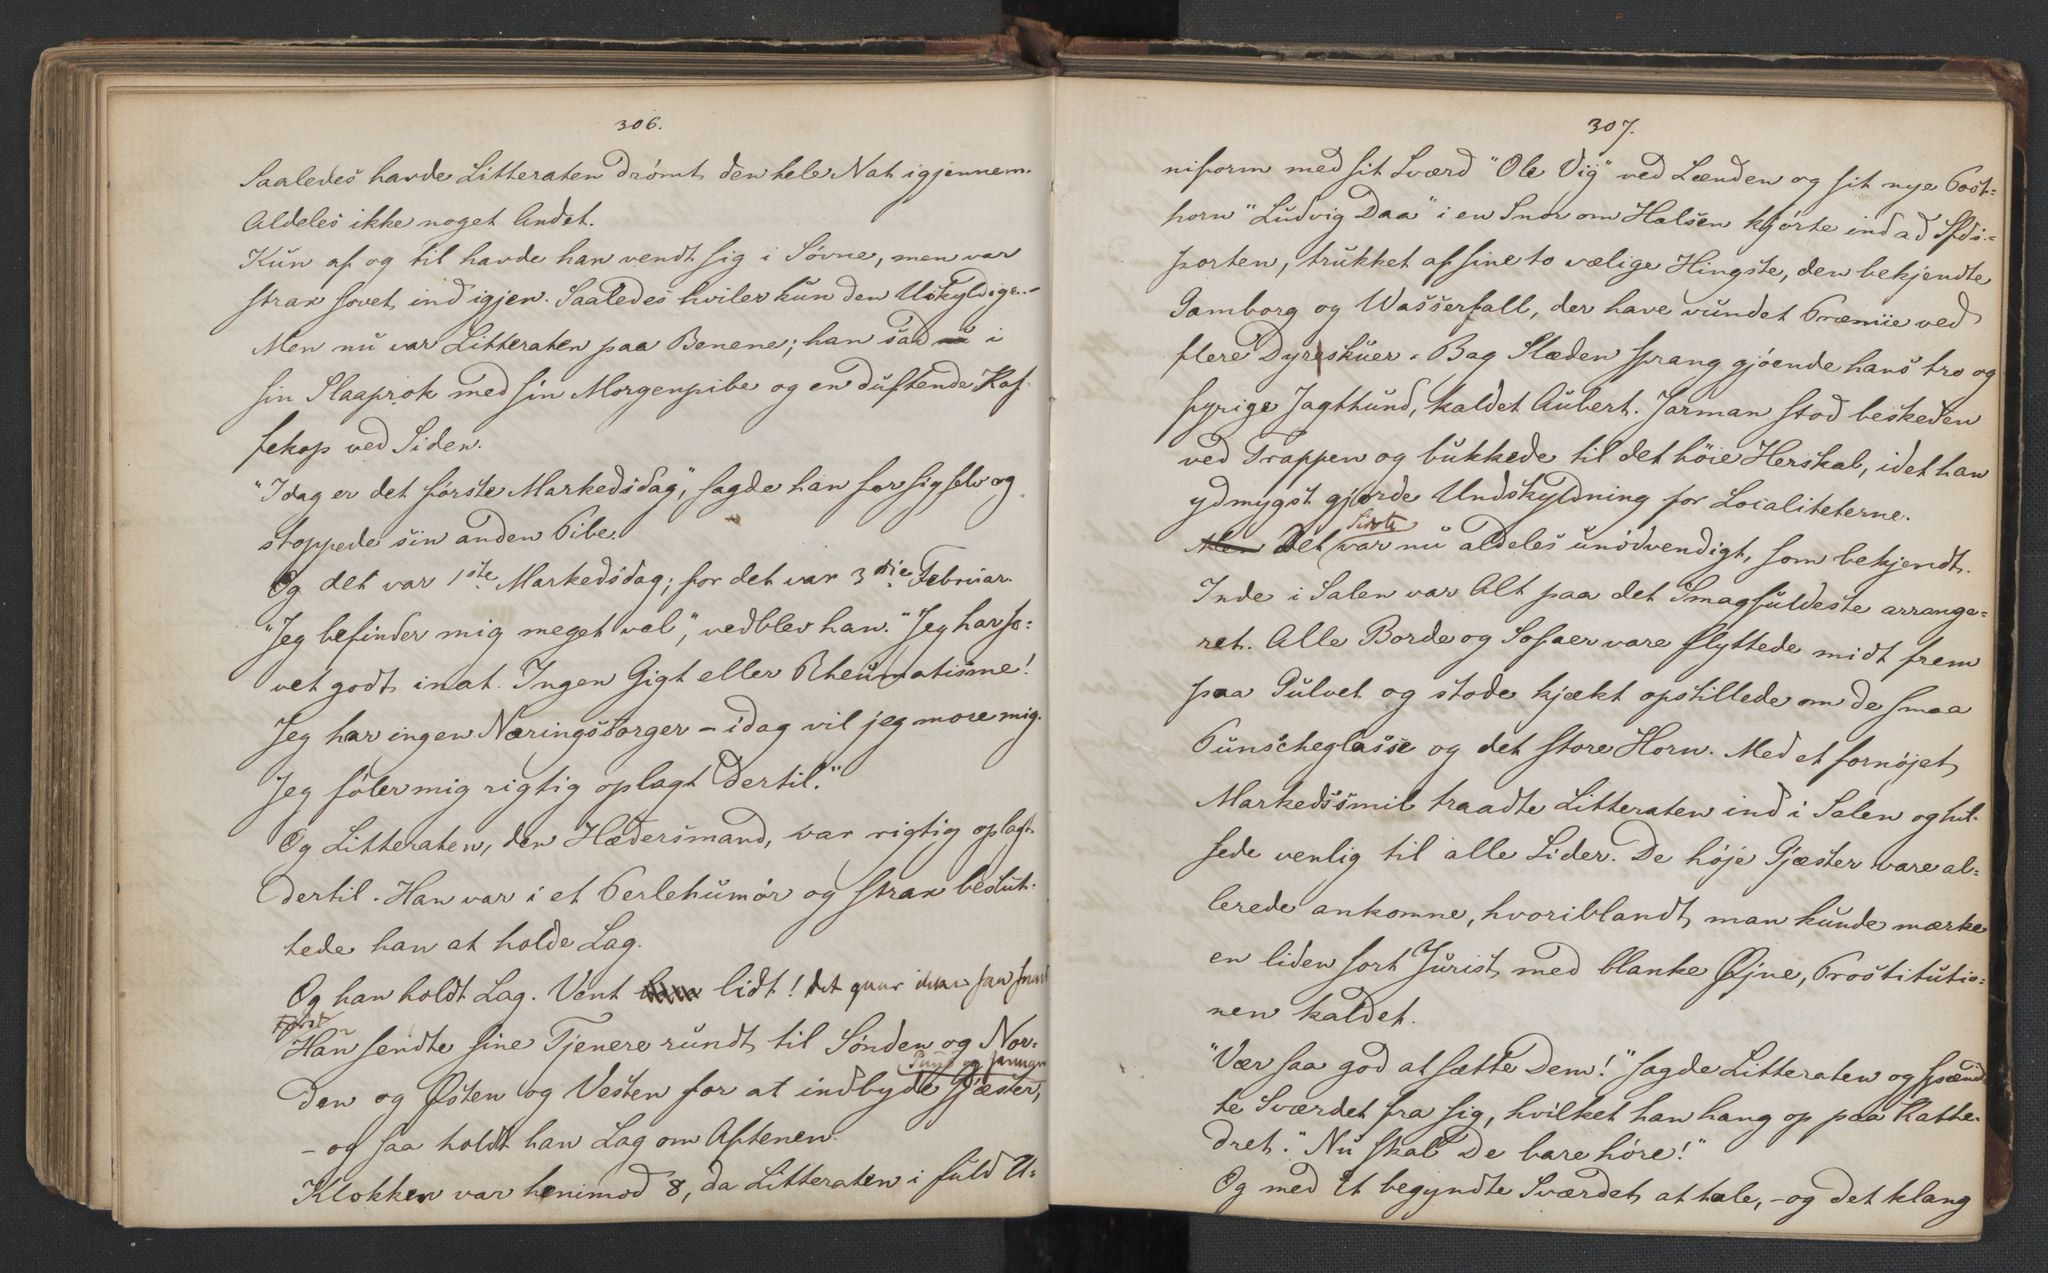 306.
Saaledes havde Litteraten drömt den hele Nat igjennem.
Aldeles ikke noget Andet.
Kun af og til havde han vendt sig i Søvne, men var
strax sovet ind igjen. Saaledes hviler kun den Uskyldige.-
Men nu var Litteraten paa Benene; han sad i
sin Slaaprok med sin Morgenpibe og en duftende Kaf-
fekop ved Siden.
"Idag er det förste Markedsdag", sagde han for sig selv og
stoppede sin anden Pibe.
Og det var 1ste Markedsdag; for det var 3die Februar.
"Jeg befinder mig meget vel", vedblev han. "Jeg har so=
vet godt inat. Ingen Gigt eller Rheumatisme!
Jeg har ingen Næringssorger - idag vil jeg more mig.
Jeg föler mig rigtig oplagt dertil."
Og Litteraten, den Hædersmand, var rigtig oplagt
dertil. Han var i et Perlehumör og strax beslut-
tede han at holde Lag.
Og han holdt Lag. Vent lidt! det gaar ikke saa snart
Først
Han sendte sine Tjenere rundt til Sønden og Nor-
Puus og Jarman
den og Østen og Vesten for at indbyde Gjæster,
- og saa holdt han Lag om Aftenen.
Klokken var henimod 8, da Litteraten i fuld U=
307.
niform med sit Sværd "Ole Vig" ved Lænden og sit nye Post=
horn "Ludvig Daa" i en Snor om Halsen kjørte ind ad Slds=
porten, trukket af sine to vælige Hingste, den bekjendte
Gamborg og Wasserfall, der have vundet Præmie ved
flere Dyreskuer. Bag Slæden sprang gjöende hans tro og
fyrige Jagthund, kaldet Aubert. Jarman stod beskeden
ved Trappen og bukkede til det höie Herskab, idet han
ydmygst gjorde Undskyldning for Localiteterne.
Sidste
Det var nu aldeles unödvendigt, som bekjendt.
Inde i Salen var Alt paa det Smagfuldeste arrange=
ret. Alle Borde og Sofaer vare flyttede midt frem
paa Gulvet og stode kjækt opstillede om de smaa
Punscheglasse og det store Horn. Med et fornøjet
Markedssmil traadte Litteraten ind i Salen og hil-
sede venlig til alle Sider. De høje Gjæster vare al=
lerede ankomne, hvoriblandt man kunde mærke
en liden sort Jurist med blanke Øjne, Prostitutio=
nen kaldet.
"Vær saa god at sætte Dem!" sagde Litteraten og spænd-
te Sværdet fra sig, hvilket han hang op paa Kathe-
dret. "Nu skal De bare høre!"
Og med Et begyndte Sværdet at tale, - og det klang